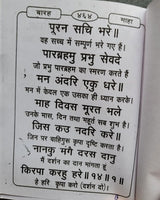 बारह ४६४ माहा
पूरन सचि भरे॥
वह सच्चे में सम्पूर्ण भरे गए हैं।
पारब्रहमु प्रभु सेवदे
जो प्रभु पारब्रहम का स्मरण करते हैं
मन अंदरि एकु धरे॥
मन में केवल एक उसका ही ध्यान करके।
माह दिवस मूरत भले
उनके मास, दिन तथा महूर्त सब शुभ है।
जिस कउ नदरि करे॥
जिन पर वाहिगुरू कृपा दृष्टि करता है।
नानकु मंगै दरस दानु
मैं दर्शन का दान मांगता हूं
किरपा करहु हरे॥१४॥१॥
हे हरि कृपा करो (दर्शन दो)।